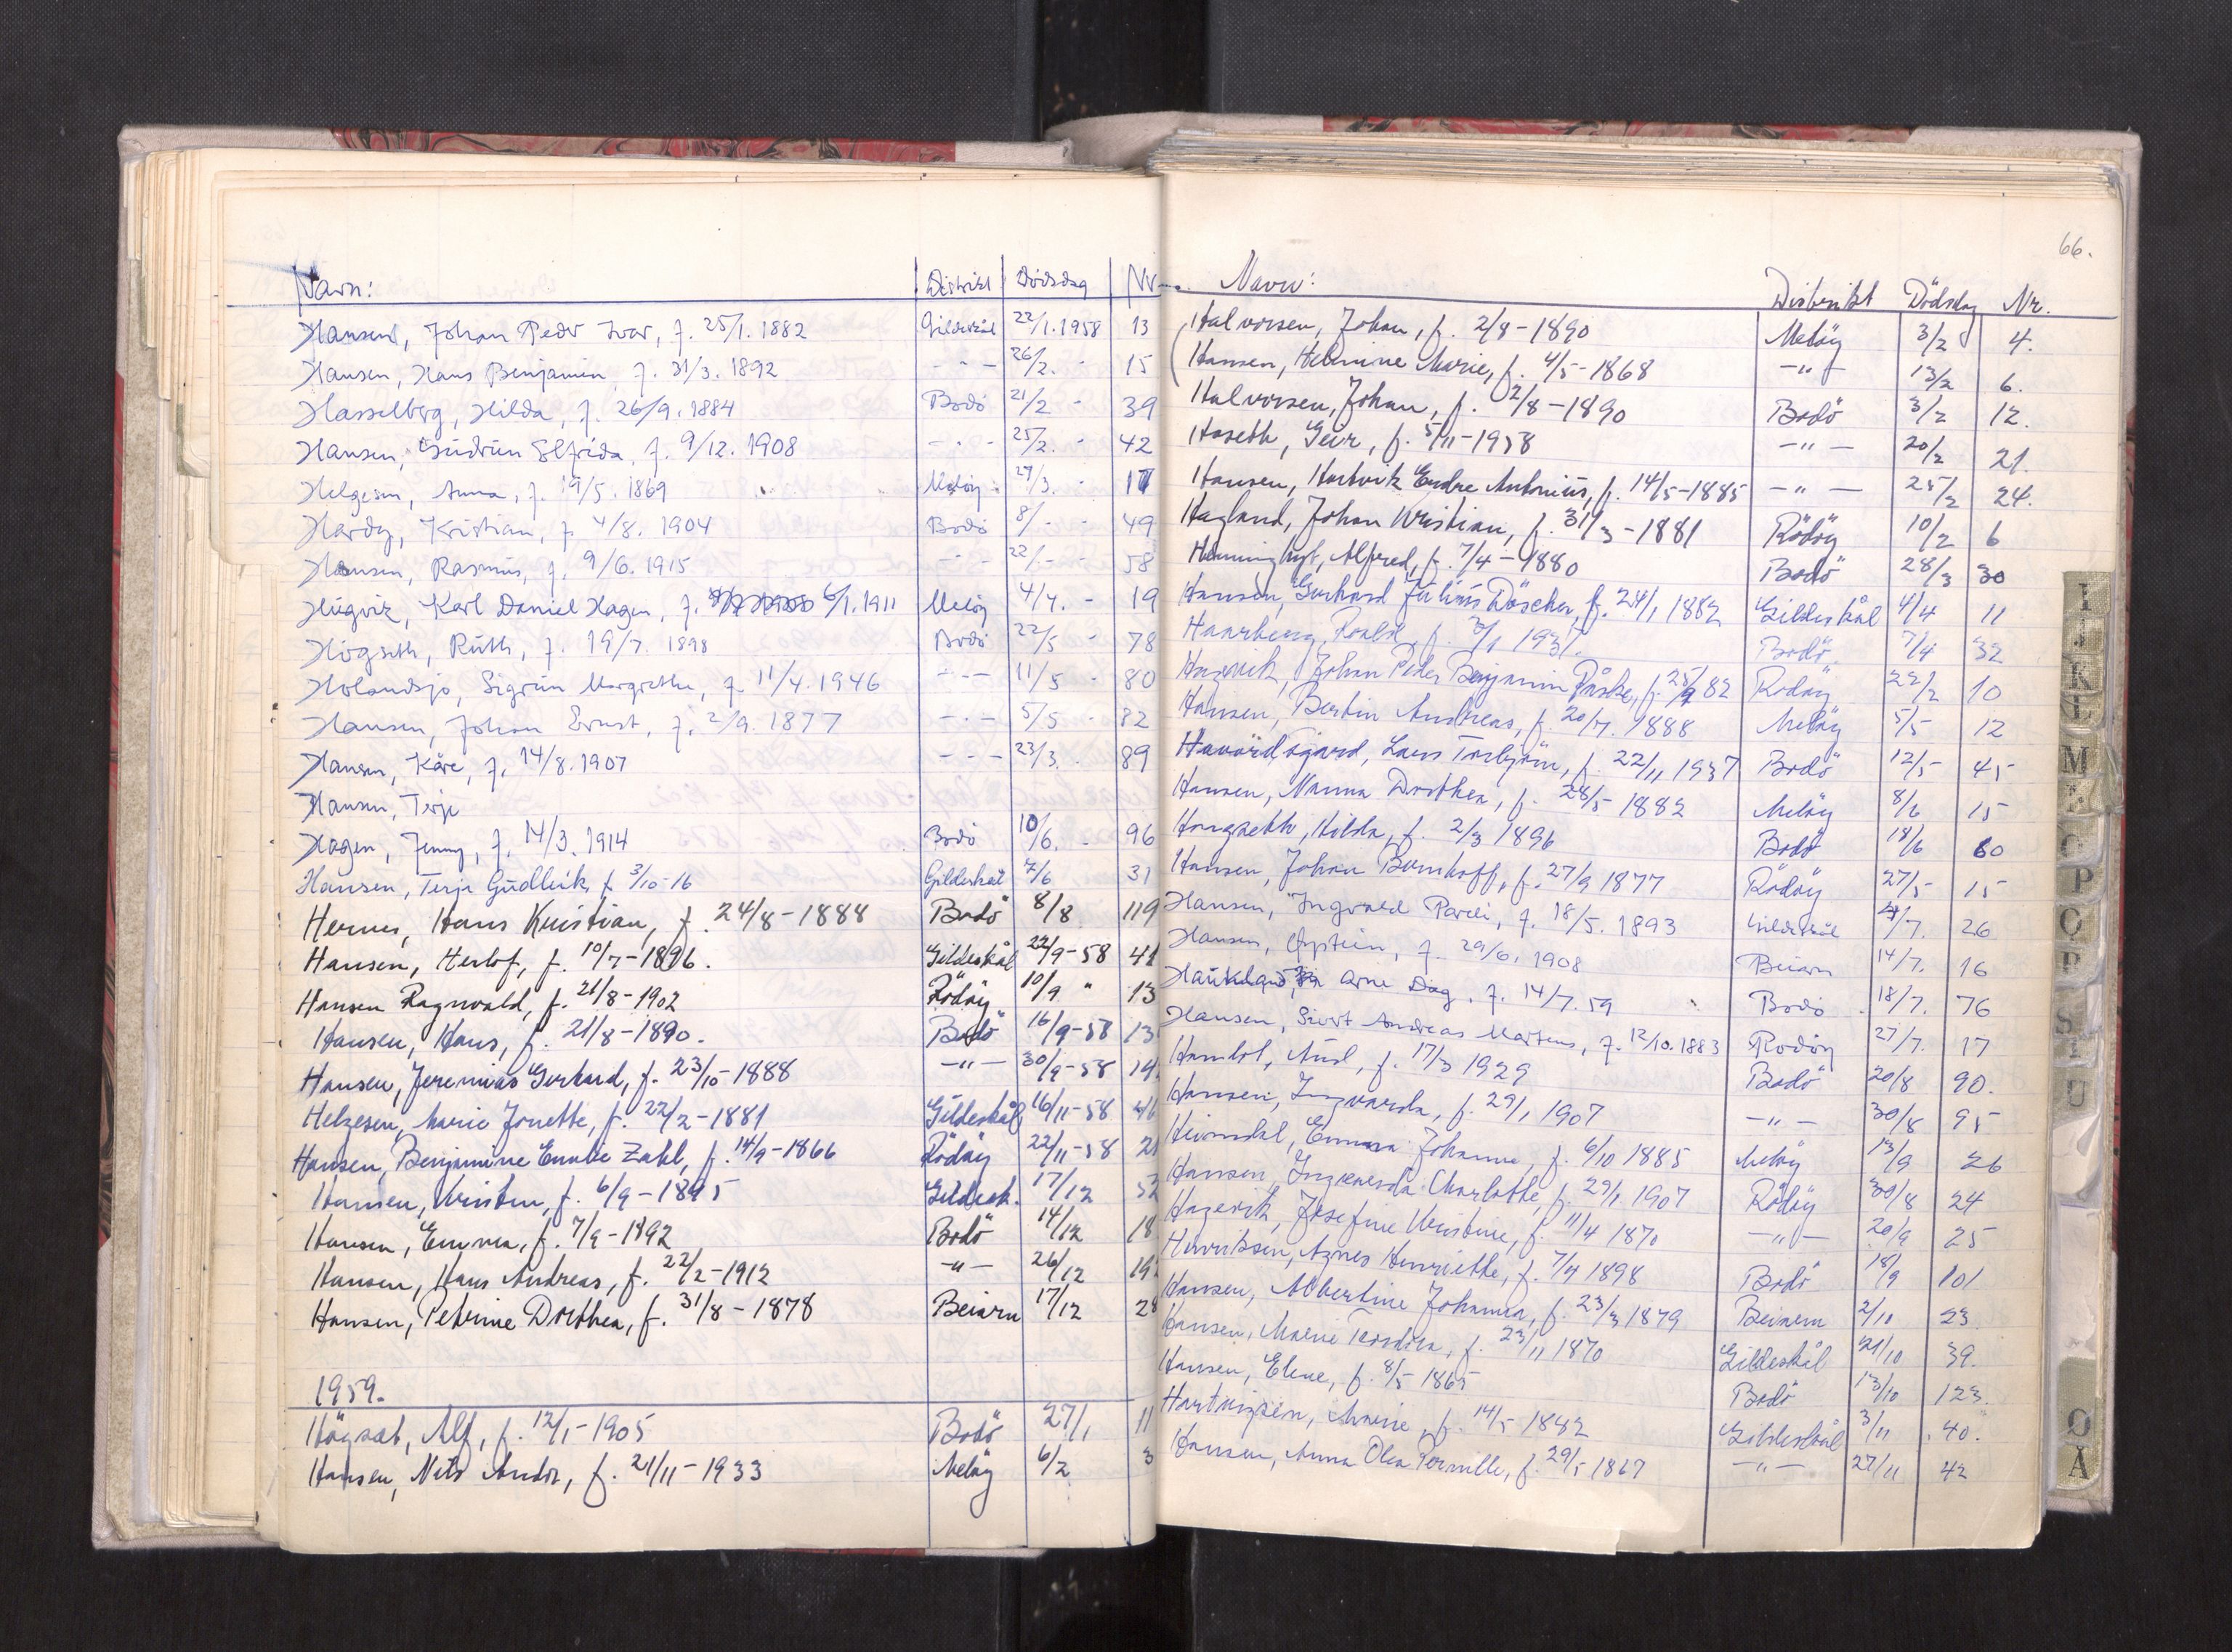 Navn: Distrikt Dødsdag Nr.
Hansen, Johan Peder Ivar, f. 25/1. 1882 Gildeskål 22/1. 1958 13
Hansen, Hans Benjamin, f. 31/3. 1892 - " - 26/2. - 15
Hasselberg, Hilda, f. 26/9. 1884 Bodö 21/2 - 39
Hansen, Gudrun Elfrida, f. 9/12. 1908 - " - 25/2. - 42
Helgesen, Anna, f. 19/5. 1869 Melöy 29/3. - 17
Hardy, Kristian, f. 4/8. 1904 Bodö 8/- - 49
Hansen, Rasmus, f. 9/6. 1915 - - 22/- - 58
Hugvik, Karl Daniel Hagen, f. 6/1. 1911 Melöy 4/4. - 19
Högseth, Ruth, f. 19/7. 1898 Bodö 22/5 - 78
Holandsjo, Sigrun Margrethe, f. 11/4. 1946 - - - 11/5 - 80
Hansen, Johan Ernst, f. 2/9. 1877 - - - 5/5 - 82
Hansen, Kåre, f. 14/8. 1907 - - - 23/3. - 89
Hansen, Terje
Hagen, Jenny, f. 14/3. 1914 Bodö 10/6. - 96
Hansen, Terje Gudleik f 3/10-16 Gildeskål 7/6 31
Hernes, Hans Kristian, f. 24/8-1888 Bodö 8/8. 119
Hansen, Herlof, f. 10/7-1896. Gildeskål 22/9-58 41
Hansen Ragnvald, f. 21/8-1902 Rödöy 10/9 " 13
Hansen, Hans, f. 21/8-1890. Bodö 16/9-58 13
Hansen, Jeremias Gerhard, f. 23/10-1888 - " - 30/9-58 14
Helgesen, Marie Jonette, f. 22/2-1881 Gildeskål 16/11-58 46
Hansen, Benjamine Emilie Zahl, f. 14/9-1866 Rödöy 22/11-58 21
Hansen, Kristen, f. 6/9-1895 Gildesk. 17/12 52
Hansen, Emma, f. 7/9-1892 Bodö 14/12 18
Hansen, Hans Andreas, f. 22/2-1912 - " - 26/12 19
Hansen, Petrine Dorthea, f. 31/8-1878 Beiarn 17/12 28
1959.
Högsæt, Alf, f. 12/1-1905 Bodö 27/1 11
Hansen, Nils Andor, f. 21/11-1933 Melöy 6/2 3
66.
Navn: Distrikt Dödsdag Nr.
Halvorsen, Johan, f. 2/8-1890 Melöy 3/2 4.
Hansen, Helmine Marie, f. 4/5-1868 - " - 13/2 6.
Halvorsen, Johan, f. 2/8-1890 Bodö 3/2 12.
Hoseth, Geir, f. 5/11-1958 - " - 20/2 21.
Hansen, Hartvik Endre Antonius, f. 14/5-1885 - " - 25/2 24.
Hagland, Johan Kristian, f. 31/3-1881 Rödöy 10/2 6
Henninghyt, Alfred, f. 7/4-1880 Bodö 28/3 30
Hansen, Gerhard Julius Döscher, f. 24/1 1882 Gildeskål 4/4 11
Haarberg, Roald, f. 1937. Bodö 7/4 32
Hagevik, Johan Peder Benjamin Påske, f. 25/9 82 Rödöy 22/2 10
Hansen, Bertin Andreas, f. 20/7. 1888 Melöy 5/5 12
Havördsgard, Lars Torbjörn, f. 22/11 1937 Bodö 12/5 45
Hansen, Nanna Dorthea, f. 28/5 1882 Melöy 8/6 15
Hongseth, Hilda, f. 2/3 1896 Bodö 18/6 60
Hansen, Johan Bernhoff, f. 27/9 1877 Rödöy 27/5 15
Hansen, Ingvald Pareli, f. 18/5. 1893 Gildeskål 4/7. 26
Hansen, Øystein, f. 29/6. 1908 Beiarn 14/7. 16
Haukland, Arne Dag, f. 14/7. 59 Bodö 18/7. 76
Hansen, Sivert Andreas Martens, f. 12/10. 1883 Rödöy 27/7. 17
Hamlot, Aud, f. 17/3 1929 Bodö 20/8 90.
Hansen, Ingvarda, f. 29/1 1907 - " - 30/8 95
Heimdal, Emma Johanne, f. 6/10 1885 Melöy 13/9 26
Hansen, Ingvarda Charlotte, f. 29/1 1907 Rödöy 30/8 24
Hagevik, Josefine Kristine, f. 11/4 1870 - " - 20/9 25
Henriksen, Agnes Henriette, f. 7/4 1898 Bodö 18/9 101
Hansen, Albertine Johanna, f. 23/3 1879 Beiarn 2/10 23
Hansen, Marie Teodora, f. 23/11 1870 Gildeskål 21/10 39.
Hansen, Elene, f. 8/5 1865 Bodö 13/10 123.
Hartvigsen, Marie, f. 14/5 1882 Gildeskål 3/11 40.
Hansen, Anna Olea Pernille, f. 29/5 1867 - " - 27/11 42
I
J
K
L
M
P
S
U
Ø
A